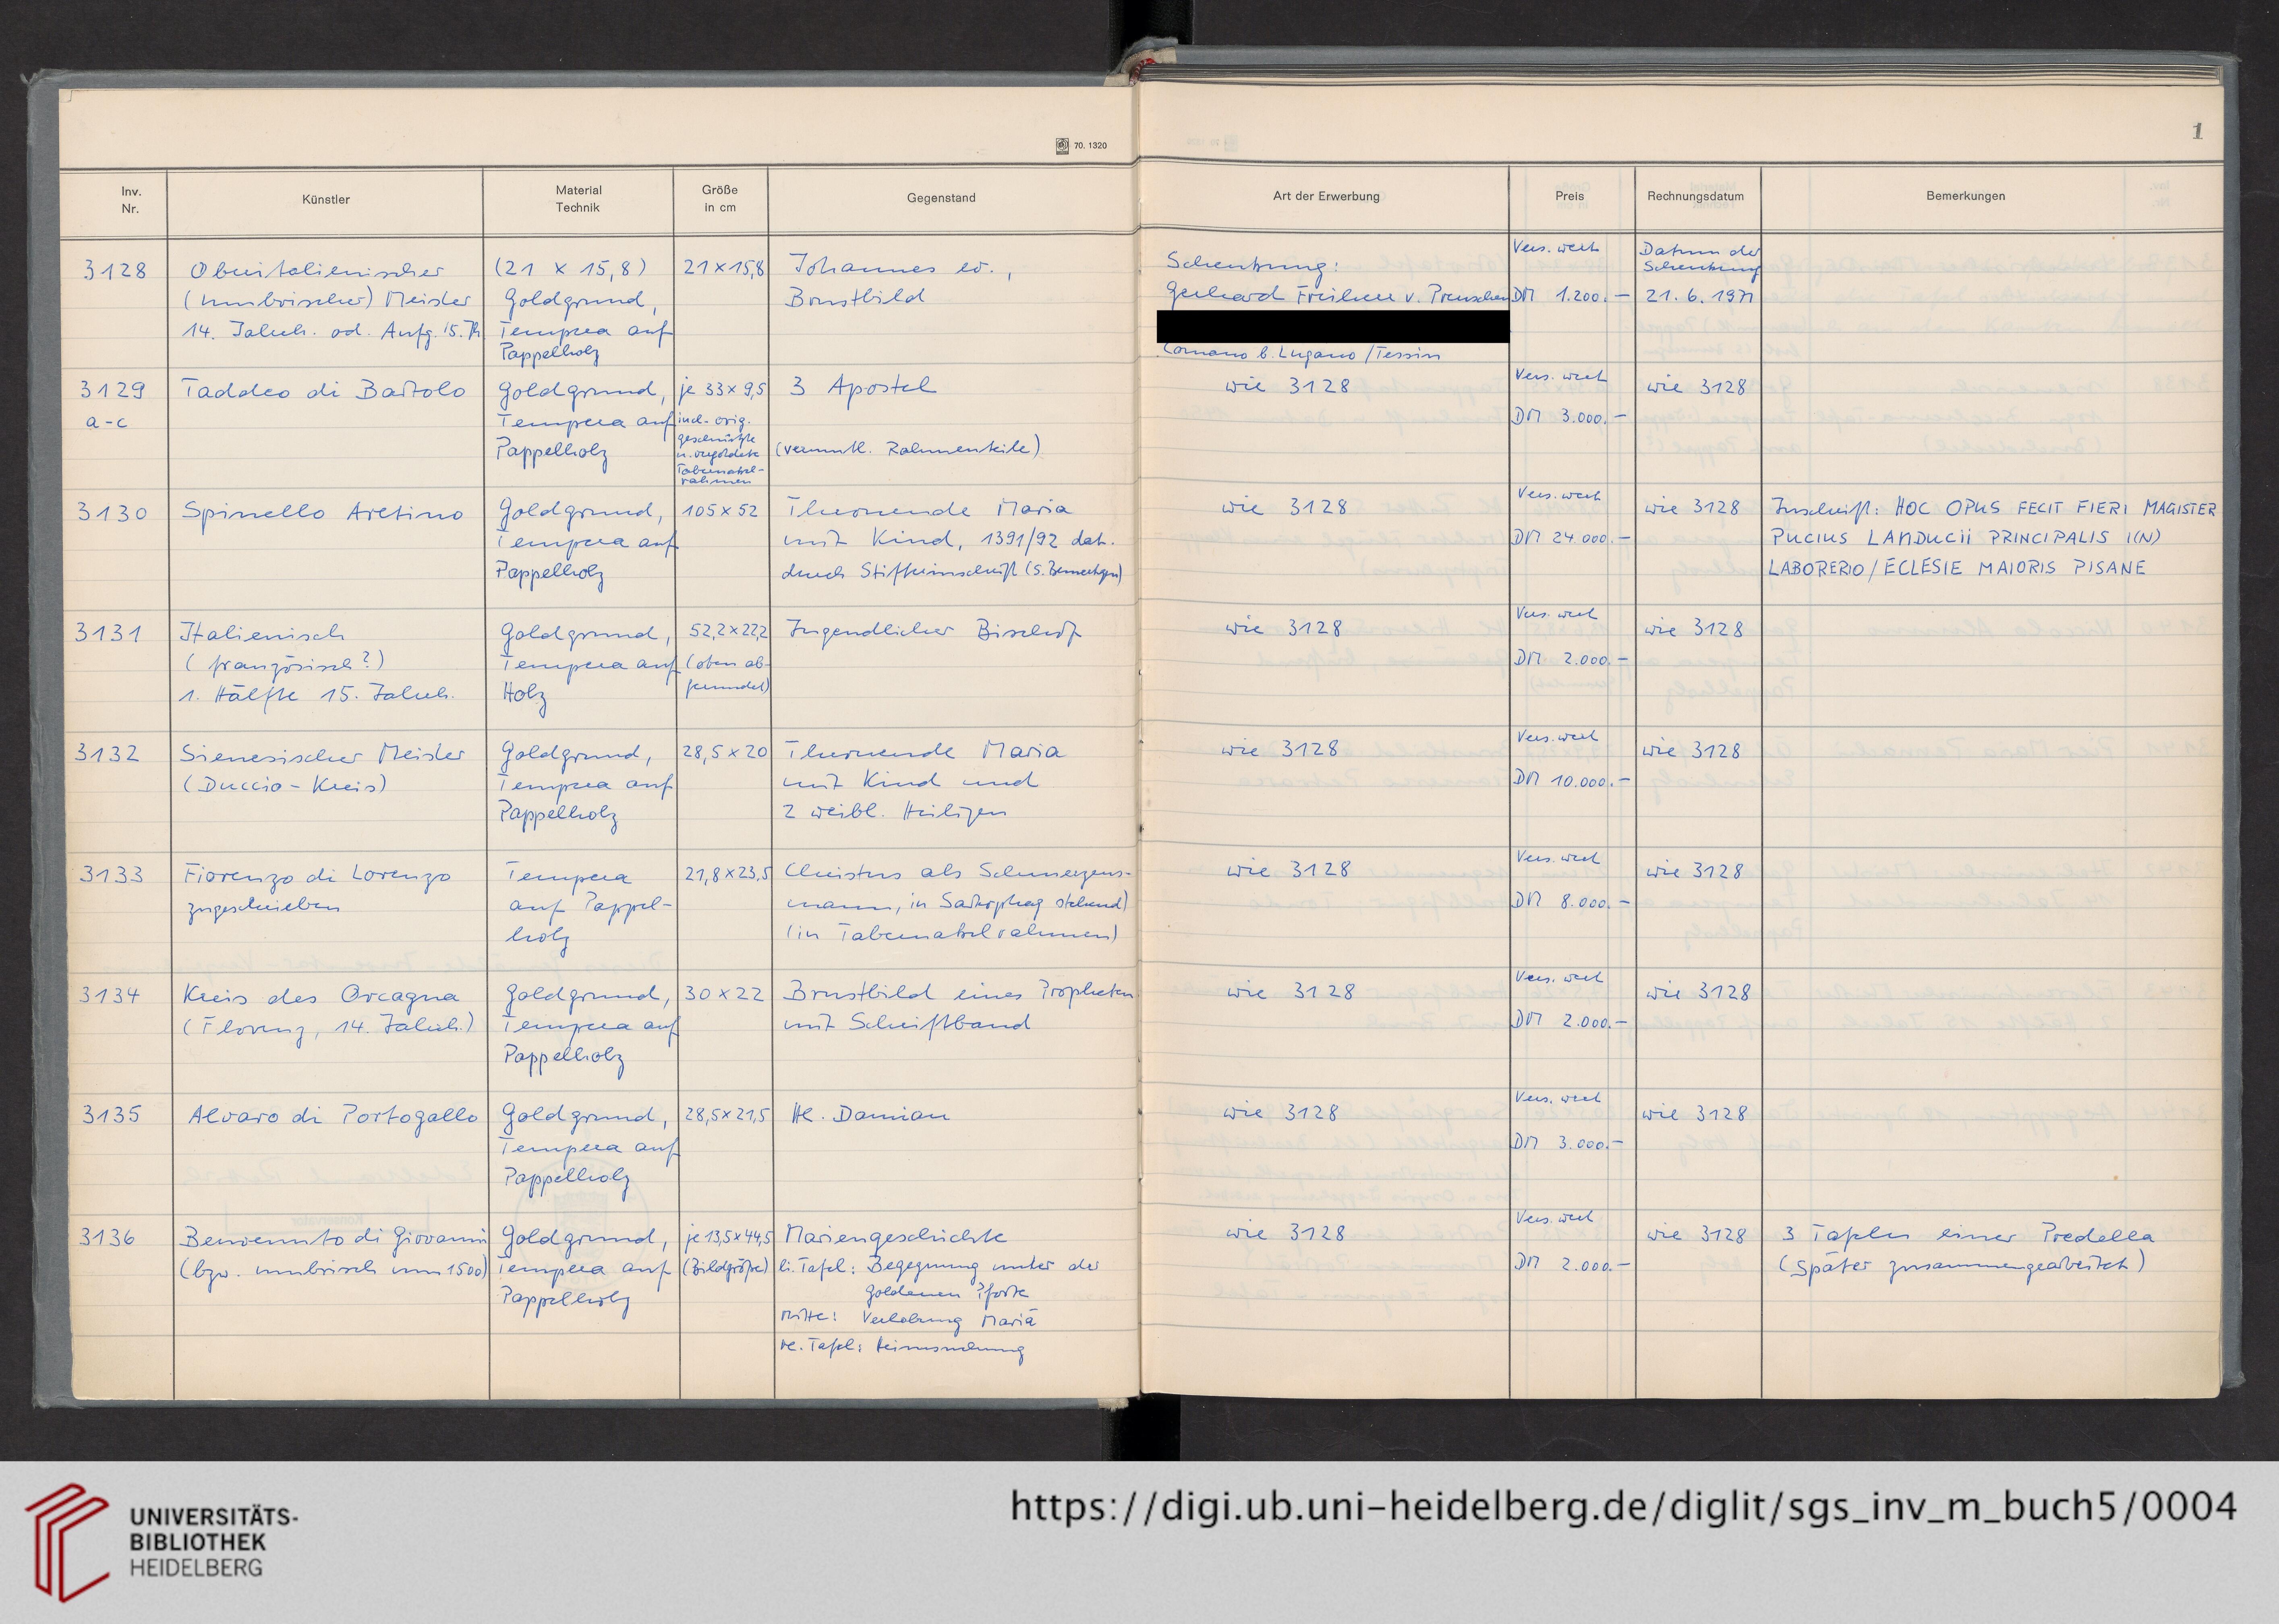 70. 1320
1
Inv. Nr.
Künstler
Material Technik
Größe in cm
Gegenstand
Art der Erwerbung
Preis
Rechnungsdatum
Bemerkungen
3128
Oberitalienischer
(umbrischer) Meister
14. Jahrh. od. Anfg. 15. Jh
(21 x 15,8)
Goldgrund,
Tempera auf
Pappelholz
21 x 15,8
Johannes ev.,
Brustbild
Schenkung:
Gerhard Freiherr v. Preuschen
Comano b. Lugano / Tessin
Vers. wert
DM 1.200.–
Datum der
Schenkung
21. 6. 1971
3129
a-c
Taddeo di Bartolo
Goldgrund,
Tempera auf
Pappelholz
je 33 x 9,5
incl. orig.
geschnitzte
u. vergoldete
Tabernakel-
rahmen
3 Apostel
(vermutl. Rahmenteile)
wie 3128
Vers. wert
DM 3.000.–
wie 3128
3130
Spinello Aretino
Goldgrund,
Tempera auf
Pappelholz
105 x 52
Thronende Maria
mit Kind, 1391/92 dat.
durch Stifterinschrift (s. Bemerkgn)
wie 3128
Vers. wert
DM 24.000.–
wie 3128
Inschrift: HOC OPUS FECIT FIERI MAGISTER
PUCIUS LANDUCII PRINCIPALIS I(N)
LABORERIO / ECLESIE MAIORIS PISANE
3131
Italienisch
(französisch?)
1. Hälfte 15. Jahrh.
Goldgrund,
Tempera auf
Holz
52,2 x 22,2
(oben ab-
gerundet)
Jugendlicher Bischof
wie 3128
Vers. wert
DM 2.000.–
wie 3128
3132
Sienesischer Meister
(Duccio-Kreis)
Goldgrund,
Tempera auf
Pappelholz
28,5 x 20
Thronende Maria
mit Kind und
2 weibl. Heiligen
wie 3128
Vers. wert
DM 10.000.–
wie 3128
3133
Fiorenzo di Lorenzo
zugeschrieben
Tempera
auf Pappel-
holz
21,8 x 23,5
Christus als Schmerzens-
mann, in Sarkophag stehend)
(in Tabernakelrahmen)
wie 3128
Vers. wert
DM 8.000.–
wie 3128
3134
Kreis des Orcagna
(Florenz, 14. Jahrh.)
Goldgrund,
Tempera auf
Pappelholz
30 x 22
Brustbild eines Propheten
mit Schriftband
wie 3128
Vers. wert
DM 2.000.–
wie 3128
3135
Alvaro di Portogallo
Goldgrund,
Tempera auf
Pappelholz
28,5 x 21,5
Hl. Damian
wie 3128
Vers. wert
DM 3.000.–
wie 3128
3136
Benvenuto di Giovanni
(bzw. umbrisch um 1500)
Goldgrund,
Tempera auf
Pappelholz
je 13,5 x 44,5
(Bildgröße)
Mariengeschichte
li. Tafel: Begegnung unter der
Goldenen Pforte
Mitte: Verlobung Mariä
re. Tafel: Heimsuchung
wie 3128
Vers. wert
DM 2.000.–
wie 3128
3 Tafeln einer Predella
(Später zusammengearbeitet)
UNIVERSITÄTS-
BIBLIOTHEK
HEIDELBERG
https://digi.ub.uni-heidelberg.de/diglit/sgs_inv_m_buch5/0004